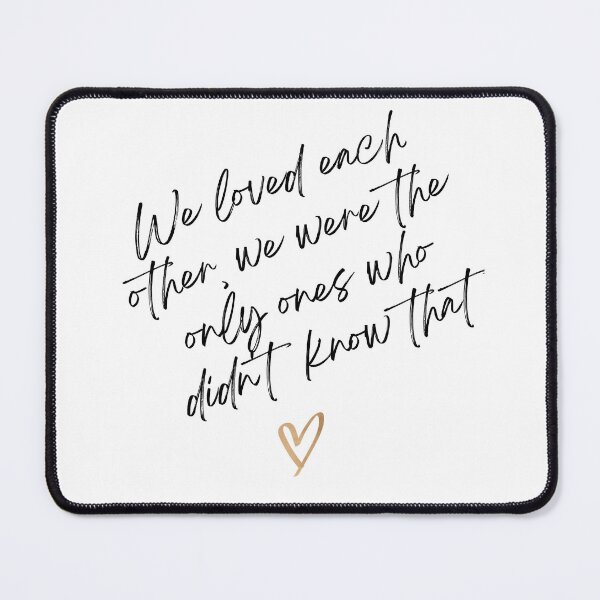 We loved each
other, we were the
only ones who
didn't know that